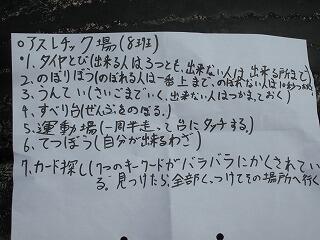 ○アスレチック場(8班)
1. タイヤとび(出来る人は3つとも、出来ない人は出来る所まで)
2. のぼりぼう(のぼれる人は一番上まで、のぼれない人は10秒つかまる)
3. うんてい(さいごまでいく、出来ない人はつかまっておく)
4. すべり台(ぜんぶをのぼる。)
5. 運動場(一周半走って台にタッチする。)
6. てつぼう(自分が出来るわざ)
7. カード探し(7つのキーワードがバラバラにかくされてい
る。見つけたら、全部くっつけてその場所へ行く